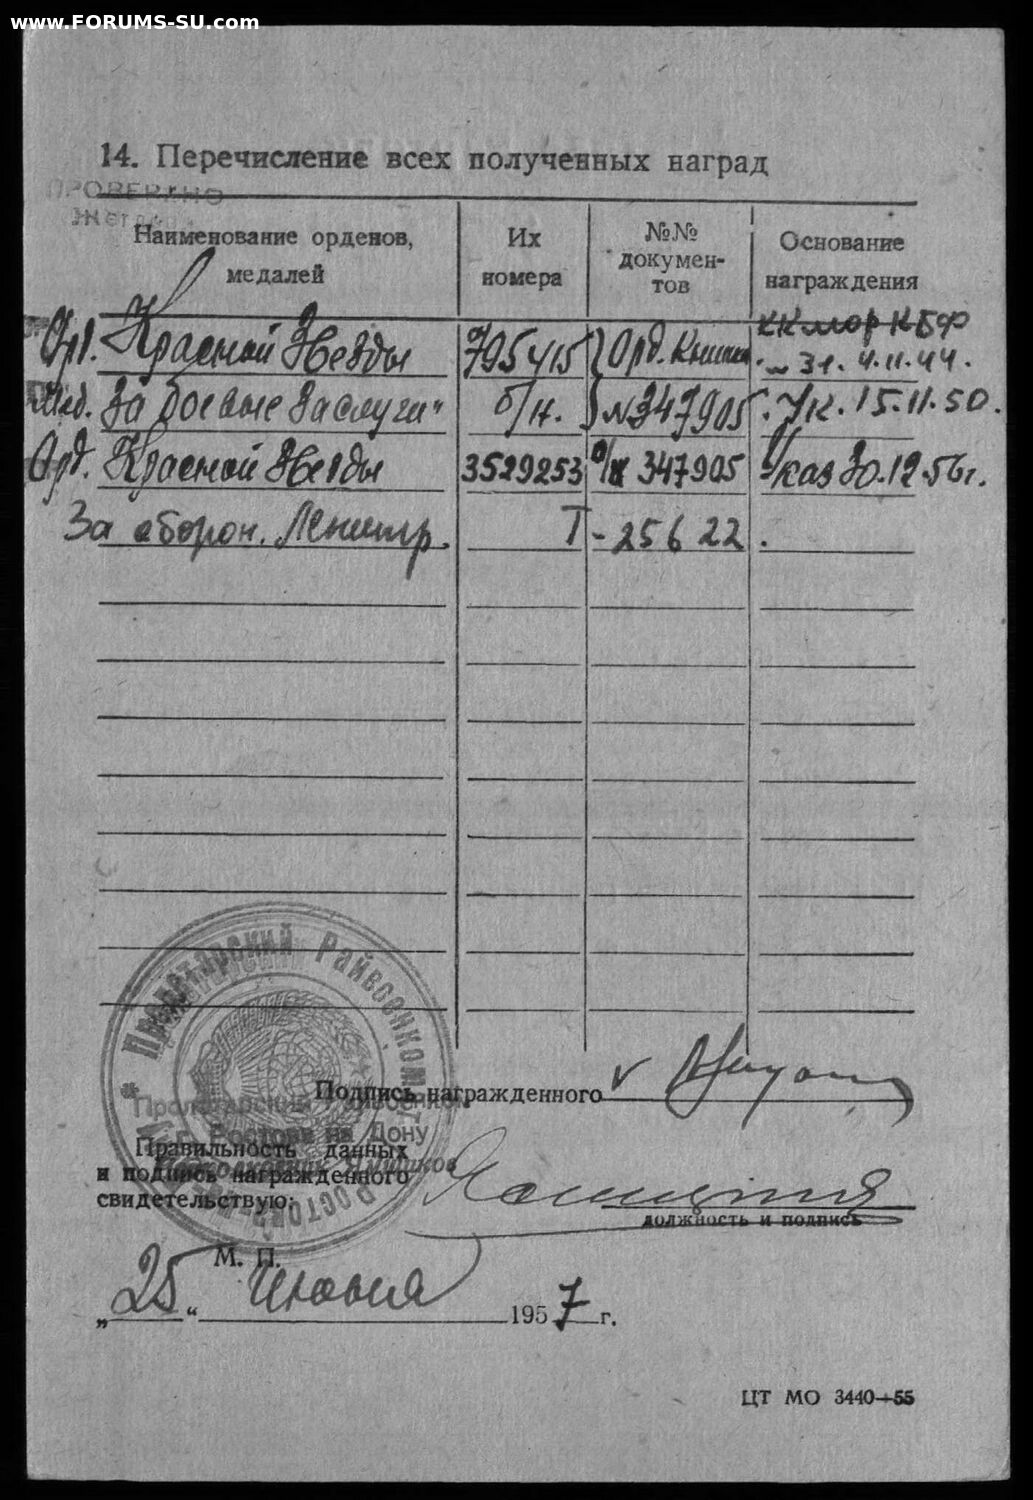 www.FORUMS-SU.com
14. Перечисление всех полученных наград
ПРОВЕРЕНО
Наименование орденов, медалей
Их номера
№№ докумен-тов
Основание награждения
Орд. Красной Звезды 795415 Орд. Книжка КБФ
№ 31. 4.11.44.
Мед. За боевые заслуги" б/н. №347905 Ук. 15.11.50.
Орд. Красной Звезды 3529253 347905 Указ 30.12.56г.
За оборон. Ленингр. Т-25622.
Пролетарский Райвоенкомат
Подпись награжденного
Пролетарский Райвоенком
г. Ростова на Дону
Правильность данных
и подпись награжденного
свидетельствую:
должность и подпись
М. П.
„25“ Июня 1957 г.
ЦТ МО 3440—55